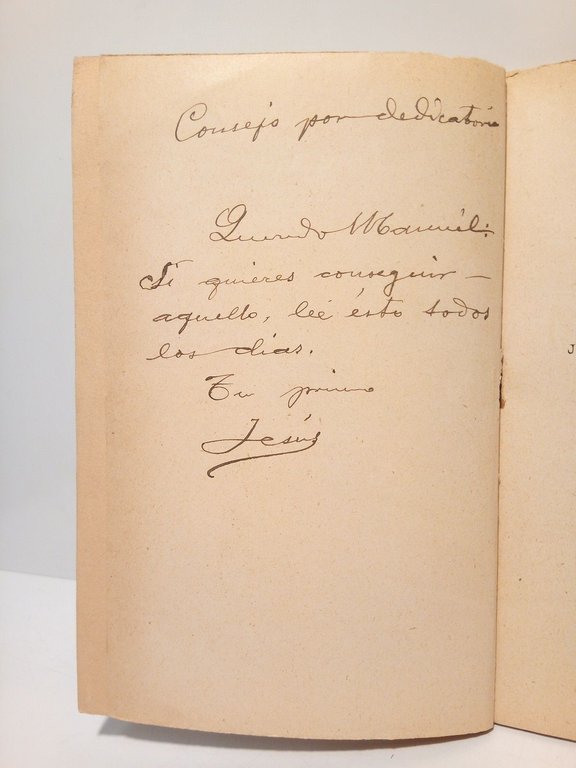 Consejo por dedicatoria
Querido Manuel:
Si quieres conseguir
aquello, lee ésto todos
los dias.
Tu primo
Jesús
J